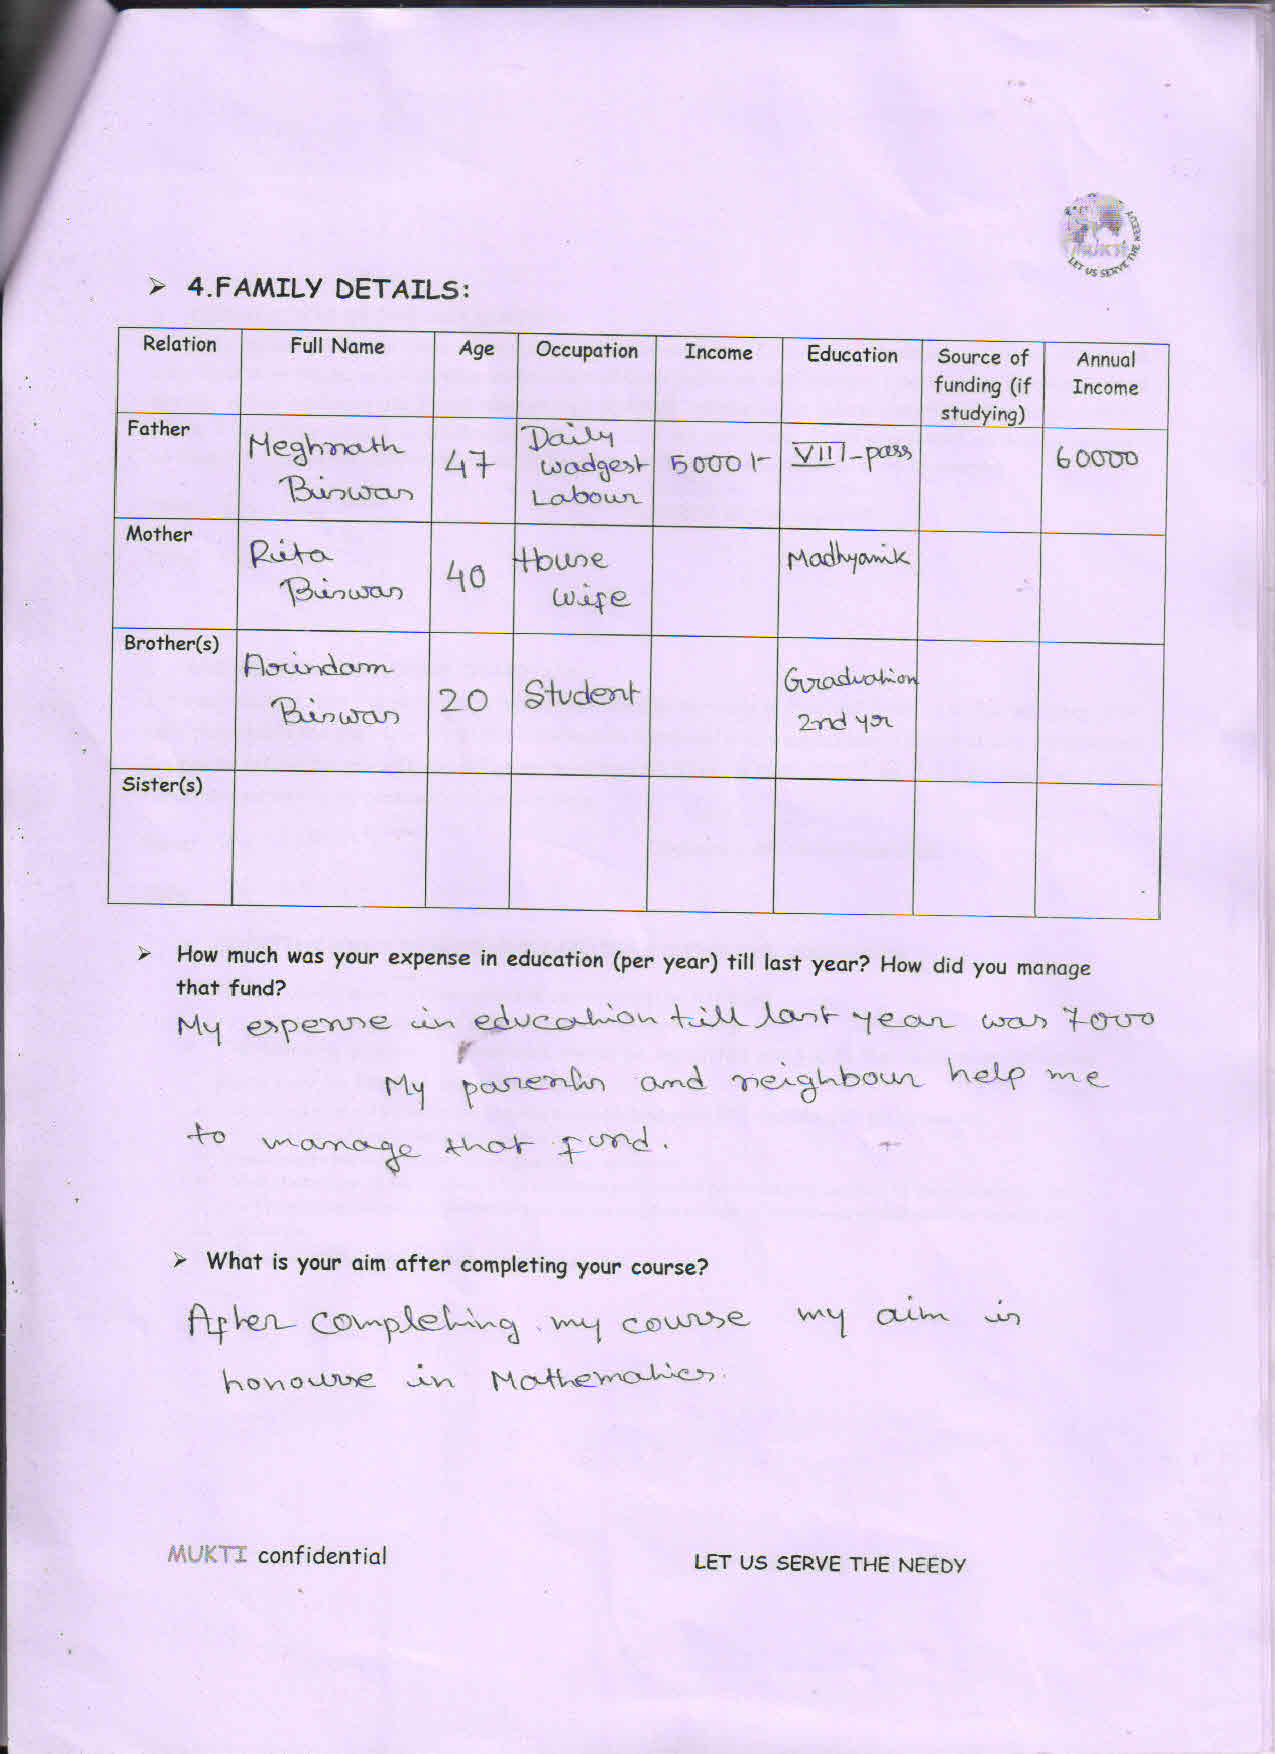 MUKTI
LET US SERVE THE NEEDY
➢ 4.FAMILY DETAILS:
Relation Full Name Age Occupation Income Education Source of funding (if studying) Annual Income
Father Meghnath Biswas 47 Daily wadgest Labour 5000/- VIII-pass 60000
Mother Rita Biswas 40 House wife Madhyamik
Brother(s) Arindam Biswas 20 Student Graduation 2nd yr
Sister(s)
➢ How much was your expense in education (per year) till last year? How did you manage
that fund?
My expense in education till last year was 7000
My parents and neighbour help me
to manage that fund.
➢ What is your aim after completing your course?
After completing my course my aim is
honourse in Mathematics.
MUKTI confidential LET US SERVE THE NEEDY